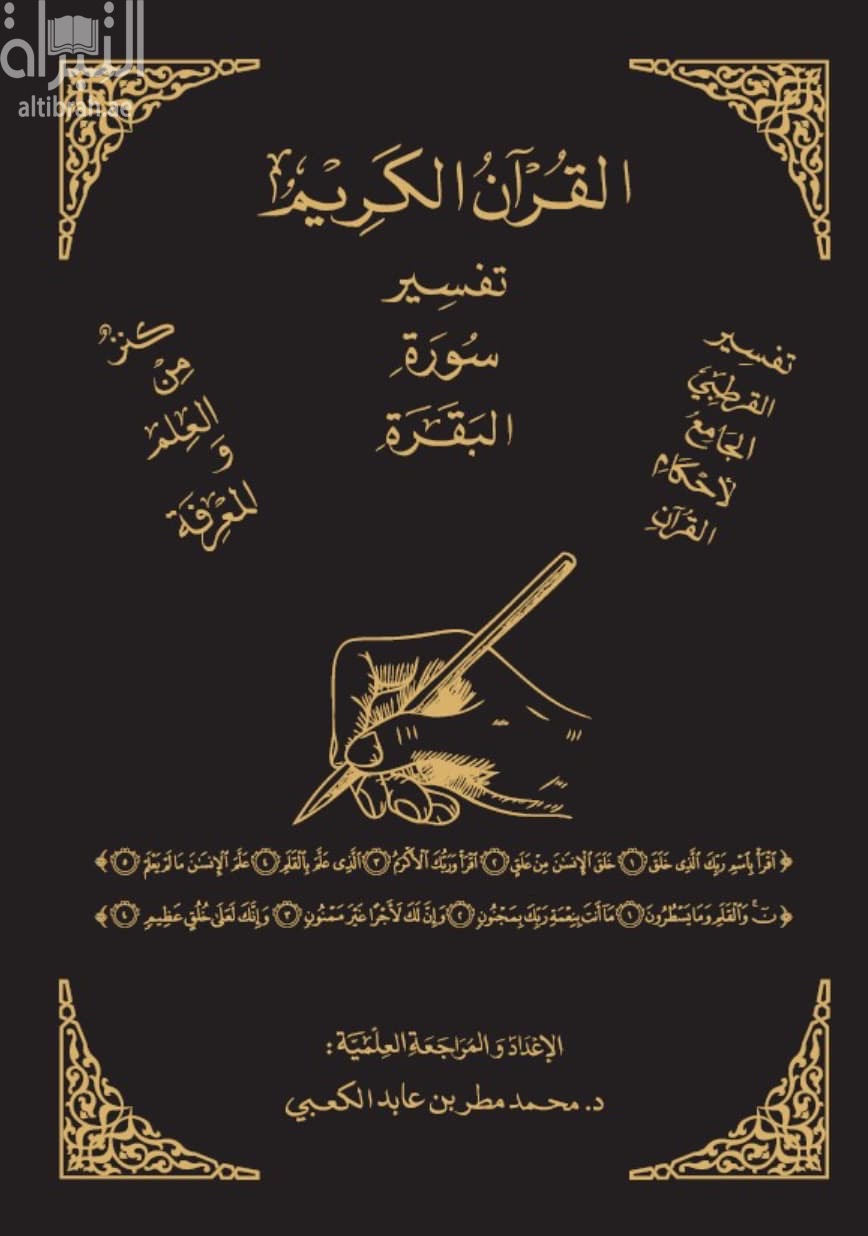 التبراه
altibrah.ae
القُرْآنُ الكَرِيْمُ
تفسِير
سُورَةِ
البَقَرَةِ
تفسِير
القرطبي
الجَامِعُ
لأَحْكَامِ
القُرآنِ
كنزٌ
مِنْ
العِلمِ
و
المَعْرِفَة
﴿ اقْرَأْ بِاسْمِ رَبِّكَ الَّذِي خَلَقَ ۝١ خَلَقَ الْإِنسَٰنَ مِنْ عَلَقٍ ۝٢ اقْرَأْ وَرَبُّكَ الْأَكْرَمُ ۝٣ الَّذِي عَلَّمَ بِالْقَلَمِ ۝٤ عَلَّمَ الْإِنسَٰنَ مَا لَمْ يَعْلَمْ ۝٥ ﴾
﴿ نٓ ۚ وَالْقَلَمِ وَمَا يَسْطُرُونَ ۝١ مَا أَنتَ بِنِعْمَةِ رَبِّكَ بِمَجْنُونٍ ۝٢ وَإِنَّ لَكَ لَأَجْرًا غَيْرَ مَمْنُونٍ ۝٣ وَإِنَّكَ لَعَلَىٰ خُلُقٍ عَظِيمٍ ۝٤ ﴾
الإعْدَاد وَالمُرَاجَعَة العِلْمِيَّة :
د. محمد مطر بن عابد الكعبي